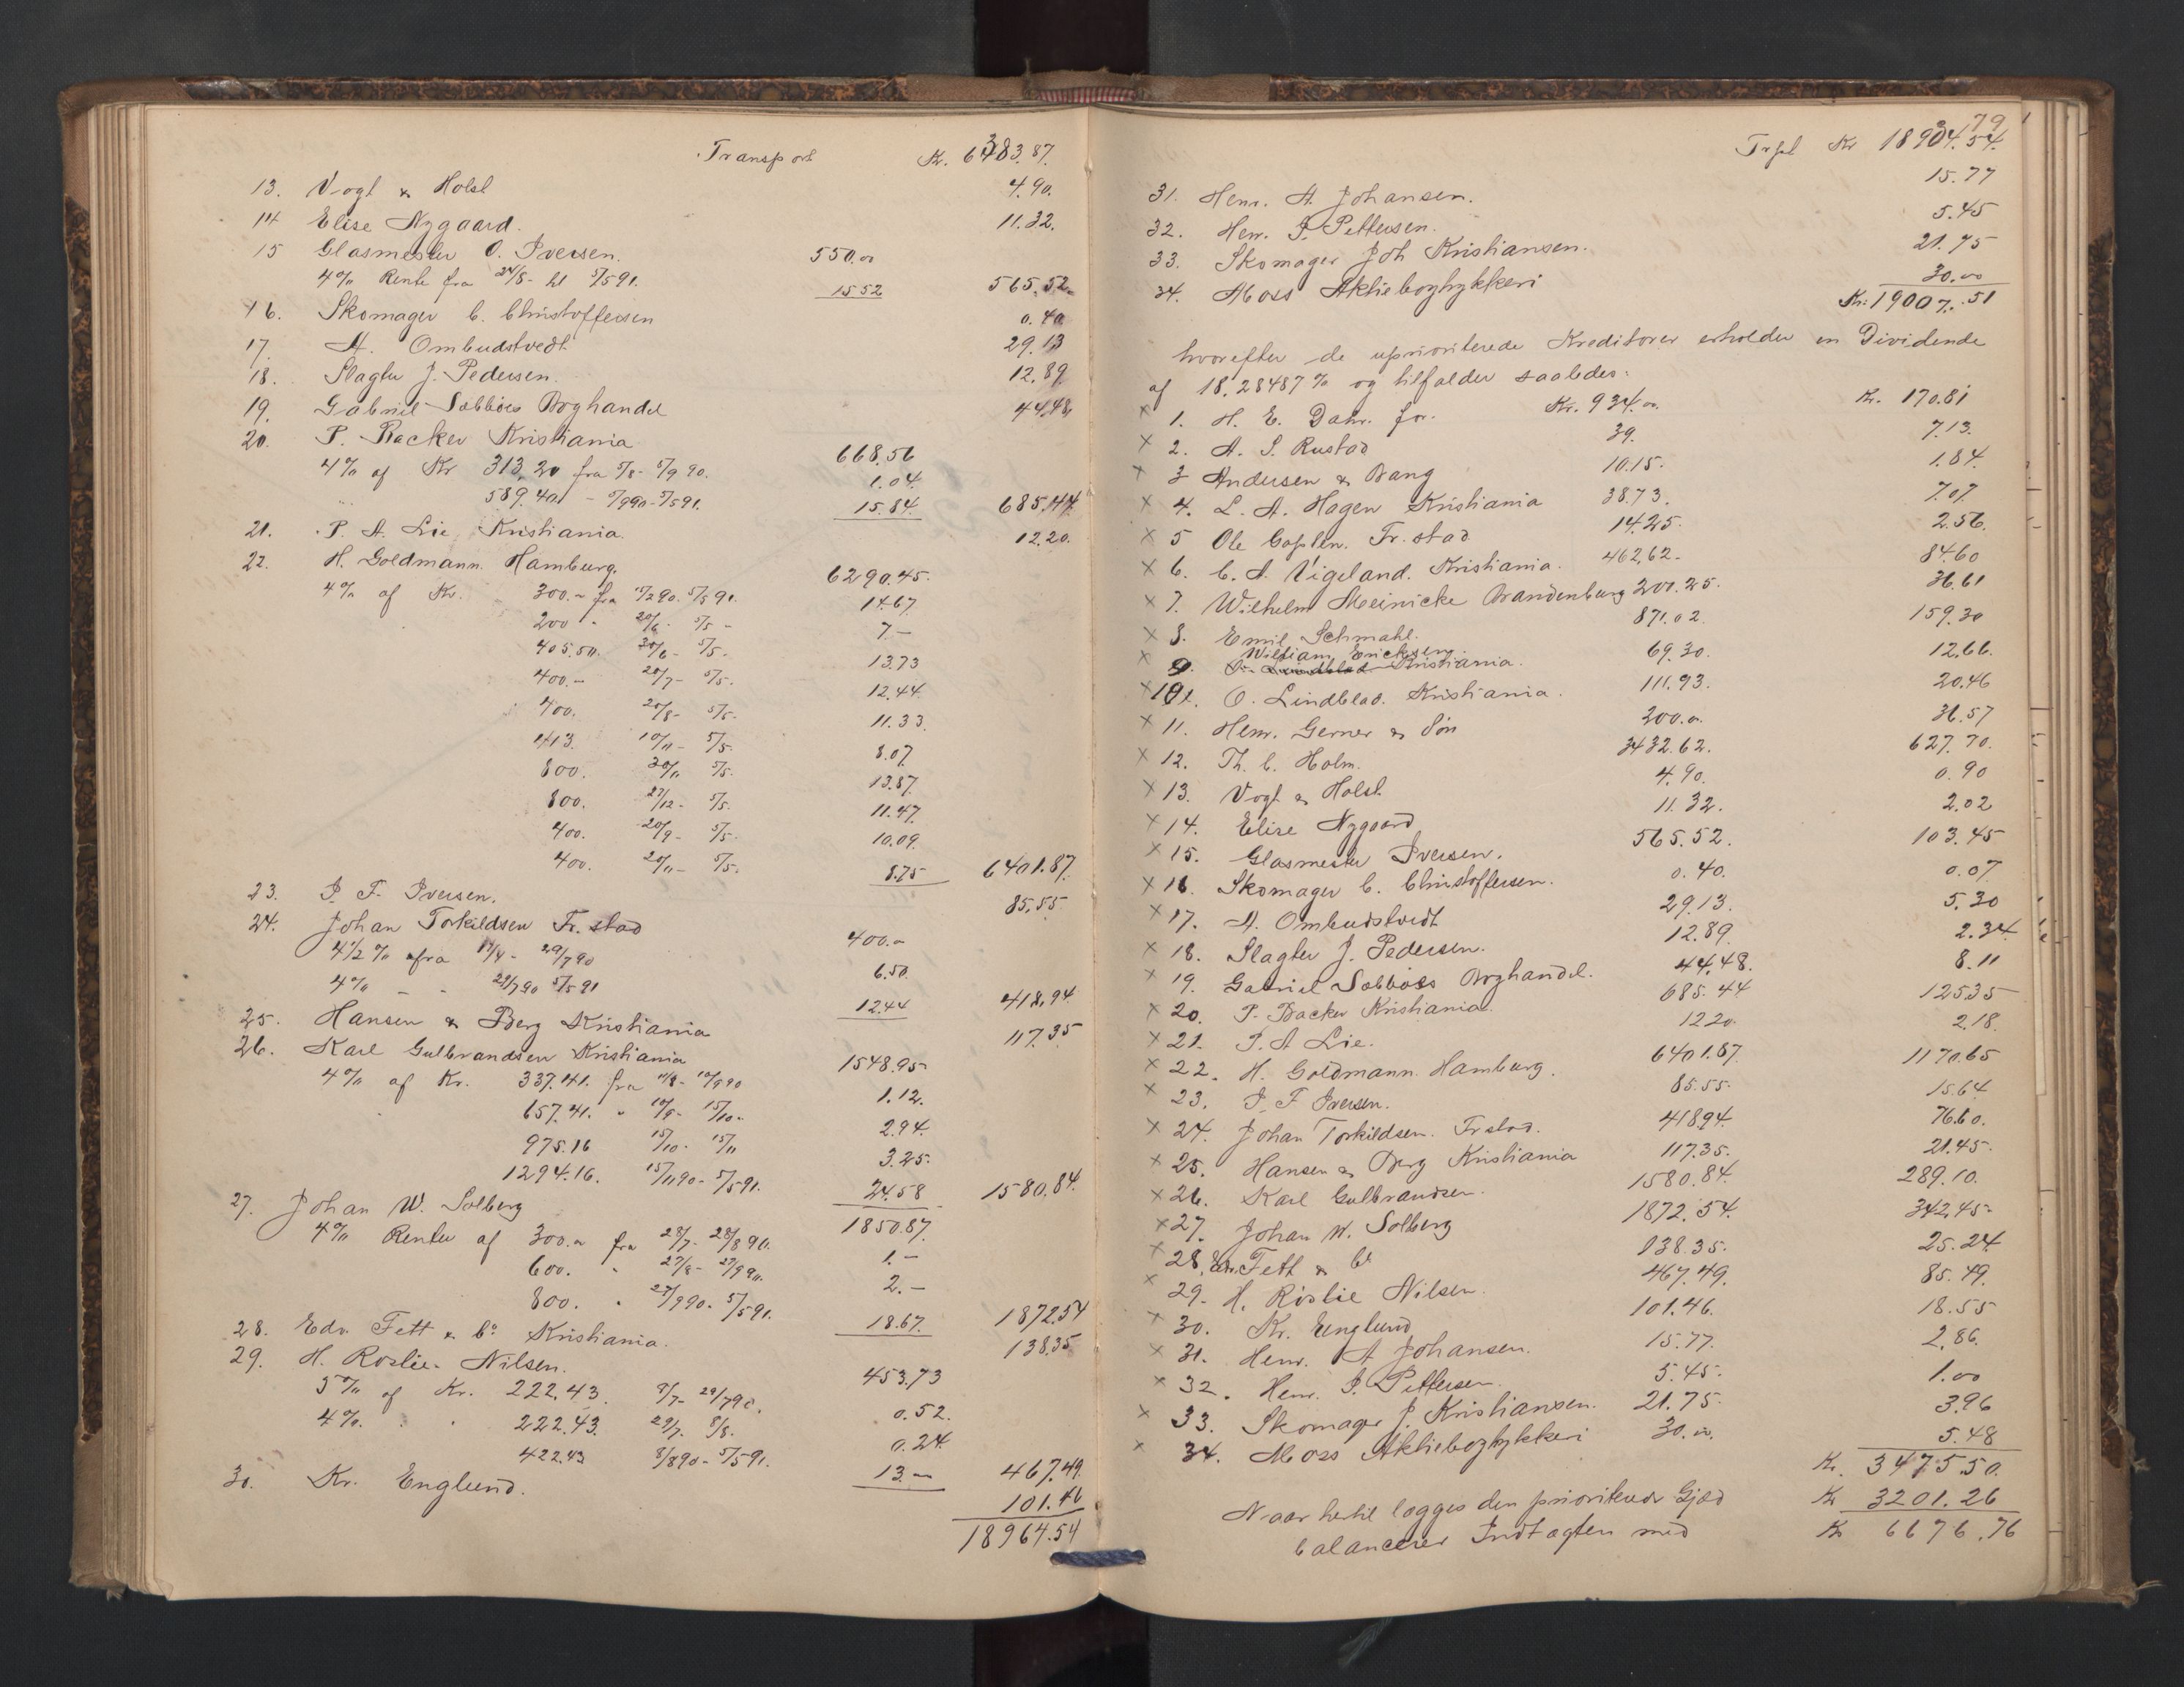 Transport Kr. 6383.87.
13. Vogt & Holst 4.90.
14 Elise Nygaard. 11.32.
15 Glasmester O. Iversen. 550.00
4% Rente fra 24/8 - til 5/5 91. 15 52 565.52
16. Skomager C. Christoffersen 0.40
17. A. Ombudstvedt 29.13
18. Slagter J. Pedersen. 12.89
19. Gabriel Sæbböes Boghandel 44.48
20. P. Backer Kristiania 668.56
4% af Kr 313,20 fra 5/8 - 5/9 90. 1.04.
589.40 - 5/9 90 - 5/5 91. 15.84. 685.44.
21. P. A. Lie Kristiania. 12.20.
22. H. Goldmann. Hamburg. 6290.45.
4% af Kr. 300.- fra 90. 5/5 91. 14.67
200 " 20/6. 5/5 - 7.-
405.50. 30/6 - 5/5. 13.73
400.- 20/7 - 5/5. 12.44.
400. 20/8 - 5/5. 11.33.
413. 10/11 - 5/5. 8.07
800. 30/11 5/5. 13.87.
800. 27/12 - 5/5. 11.47.
400. 20/9 - 5/5. 10.09.
400. 20/11 - 5/5. 8.75 6401.87.
23. J. F. Iversen. 85.55
24. Johan Torkildsen Fr. stad 400.-
4 1/2 % fra 17/4 - 29/7 90 6.50.
4% - - 29/7 90 5/5 91 12.44 418.94
25. Hansen & Berg Kristiania 117.35
26. Karl Gulbrandsen Kristiania 1548.95
4% af Kr. 337.41. fra 11/8 - 10/9 90 1.12.
657.41. " 10/9 - 15/10 - 2.94.
975.16 15/10 - 15/11 3.25.
1294.16. 15/11 90 - 5/5 91. 24.58 1580.84.
27. Johan W. Solberg 1850.87.
4% Renter af 300.- fra 28/7 - 28/8 90. 1.-
600. " 27/8 - 27/9 90. 2.-
800. " 27/9 90 - 5/5 91. 18.67. 1872.54
28. Edv. Fett & Co Kristiania. 138.35
29. H. Roslie - Nilsen. 453.73
5% af Kr. 222.43. 8/7 - 29/7 90. 0.52.
4%. " " 222.43. 29/7. 8/8. 0.24.
422.43 8/8 90 - 5/5 91. 13.00 467.49.
30. Kr. Englund. 101.46
18964.54
79
Trspt Kr 18904.54.
31. Henr. A. Johansen. 15.77
32. Henr. J. Pettersen. 5.45
33. Skomager Joh Kristiansen. 21.75
34. Moss Aktiebogtrykkeri 30.00
Kr. 19007.51
hvorefter de uprioriterede Kreditorer erholder en Dividende
af 18.28487 % og tilfalder saaledes:
x 1. H. E. Dahr. for. Kr. 934.00. Kr. 170.81
x 2. A. S. Rustad 39. 7.13.
x 3 Andersen & Bang 10.15. 1.84.
x 4. L. A. Hagen Kristiania 38.73. 7.07.
x 5 Ole Caplen. Fr. stad 14.25. 2.56.
x 6. C. A. Vigeland. Kristiania. 462,62 - 84.60
x 7. Wilhelm Meinicke Brandenburg 200.25. 36.61
x 8. Emil Schmahl. 871.02. 159.30
x 9. William Ericksen. Kristiania. 69.30. 12.66.
x 10. O. Lindblad. Kristiania. 111.93. 20.46
x 11. Henr. Gerner & Søn 200.00. 36.57
x 12. Th. C. Holm. 3432.62. 627.70.
x 13. Vogt & Holst. 4.90. 0.90
x 14. Elise Nygaard 11.32. 2.02
x 15. Glasmester Iversen. 565.52. 103.45
x 16. Skomager C. Christoffersen. 0.40. 0.07
x 17. A. Ombudstvedt 29.13. 5.30
x 18. Slagter J. Pedersen. 12.89. 2.34.
x 19. Gabriel Sæbböes Boghandel. 44.48. 8.11
x 20. P. Backer Kristiania. 685.44 125.35
x 21. P. A Lie. 12.20. 2.18.
x 22. H. Goldmann. Hamburg. 6401.87. 1170.65
x 23. J. F Iversen. 85.55. 15.64.
x 24. Johan Torkildsen. Frstad. 418.94. 76.60.
x 25. Hansen & Berg Kristiania 117.35. 21.45.
x 26. Karl Gulbrandsen. 1580.84. 289.10.
x 27. Johan W. Solberg 1872.54. 342.45
x 28. Edv. Fett & Co 138.35. 25.24
x 29. H. Röslie Nilsen. 467.49. 85.49.
x 30. Kr. Englund 101.46. 18.55
x 31. Henr. A Johansen. 15.77. 2.86.
x 32. Henr. J. Pettersen. 5.45. 1.00
x 33. Skomager J. Kristiansen. 21.75. 3.96
x 34. Moss Aktiebogtrykkeri 30.00. 5.48
Kr. 3475.50.
Naar hertil lægges den prioriterede Gjæld Kr 3201.26
balancerer Indtægten med Kr 6676.76